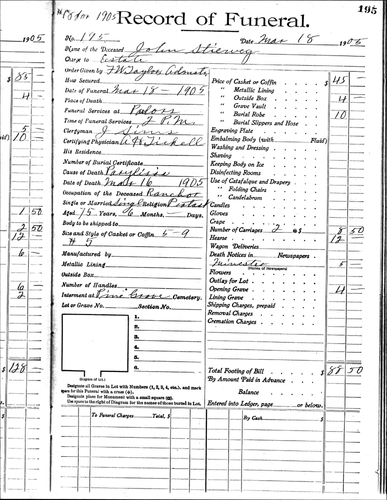 195
Record of Funeral.
1905
No. 195 Date Mar 18 1905
Name of the Deceased John
Charge to Estate
Order Given by F W Taylor Admstr
How Secured
Date of Funeral Mar 18 – 1905
Place of Death
Funeral Services at Palors
Time of Funeral Services 2 P.M.
Clergyman J Sims
Certifying Physician
His Residence
Number of Burial Certificate
Cause of Death Parylisis
Date of Death Mar 16 1905
Occupation of the Deceased Rancher
Single or Married Singl Religion Protest
Aged 75 Years, 6 Months, – Days.
Body to be shipped to
Size and Style of Casket or Coffin 5-9
Manufactured by
Metallic Lining
Outside Box
Number of Handles
Interment at Pine Grove Cemetery.
Lot or Grave No. Section No.
1.
2.
3.
4.
5.
6.
(Diagram of Lot.)
Designate all Graves in Lot with Numbers (1, 2, 3, 4, etc.), and mark
open for this Funeral with a cross (x).
Designate place for Monument with a small square (□).
Use space to the right of Diagram for the names of those buried in Lot.
To Funeral Charges Total, $
Price of Casket or Coffin $ 45
" Metallic Lining
" Outside Box 4
" Grave Vault
" Burial Robe 10
" Burial Slippers and Hose
Engraving Plate
Embalming Body (with Fluid)
Washing and Dressing
Shaving
Keeping Body on Ice
Disinfecting Rooms
Use of Catafalque and Drapery
" Folding Chairs
" Candelabrum
Candles
Gloves
Crape
Number of Carriages 2 @ $ 8 50
Hearse 12
Wagon Deliveries
Death Notices in Newspapers
Minister 5
(Names of Newspapers)
Flowers
Outlay for Lot
Opening Grave 4
Lining Grave
Shipping Charges, prepaid
Removal Charges
Cremation Charges
Total Footing of Bill $ 88 50
By Amount Paid in Advance
Balance
Entered into Ledger, page or below.
By Cash $
$ 85
4
5
10
1 50
2 50
12
6
6
2
$ 128